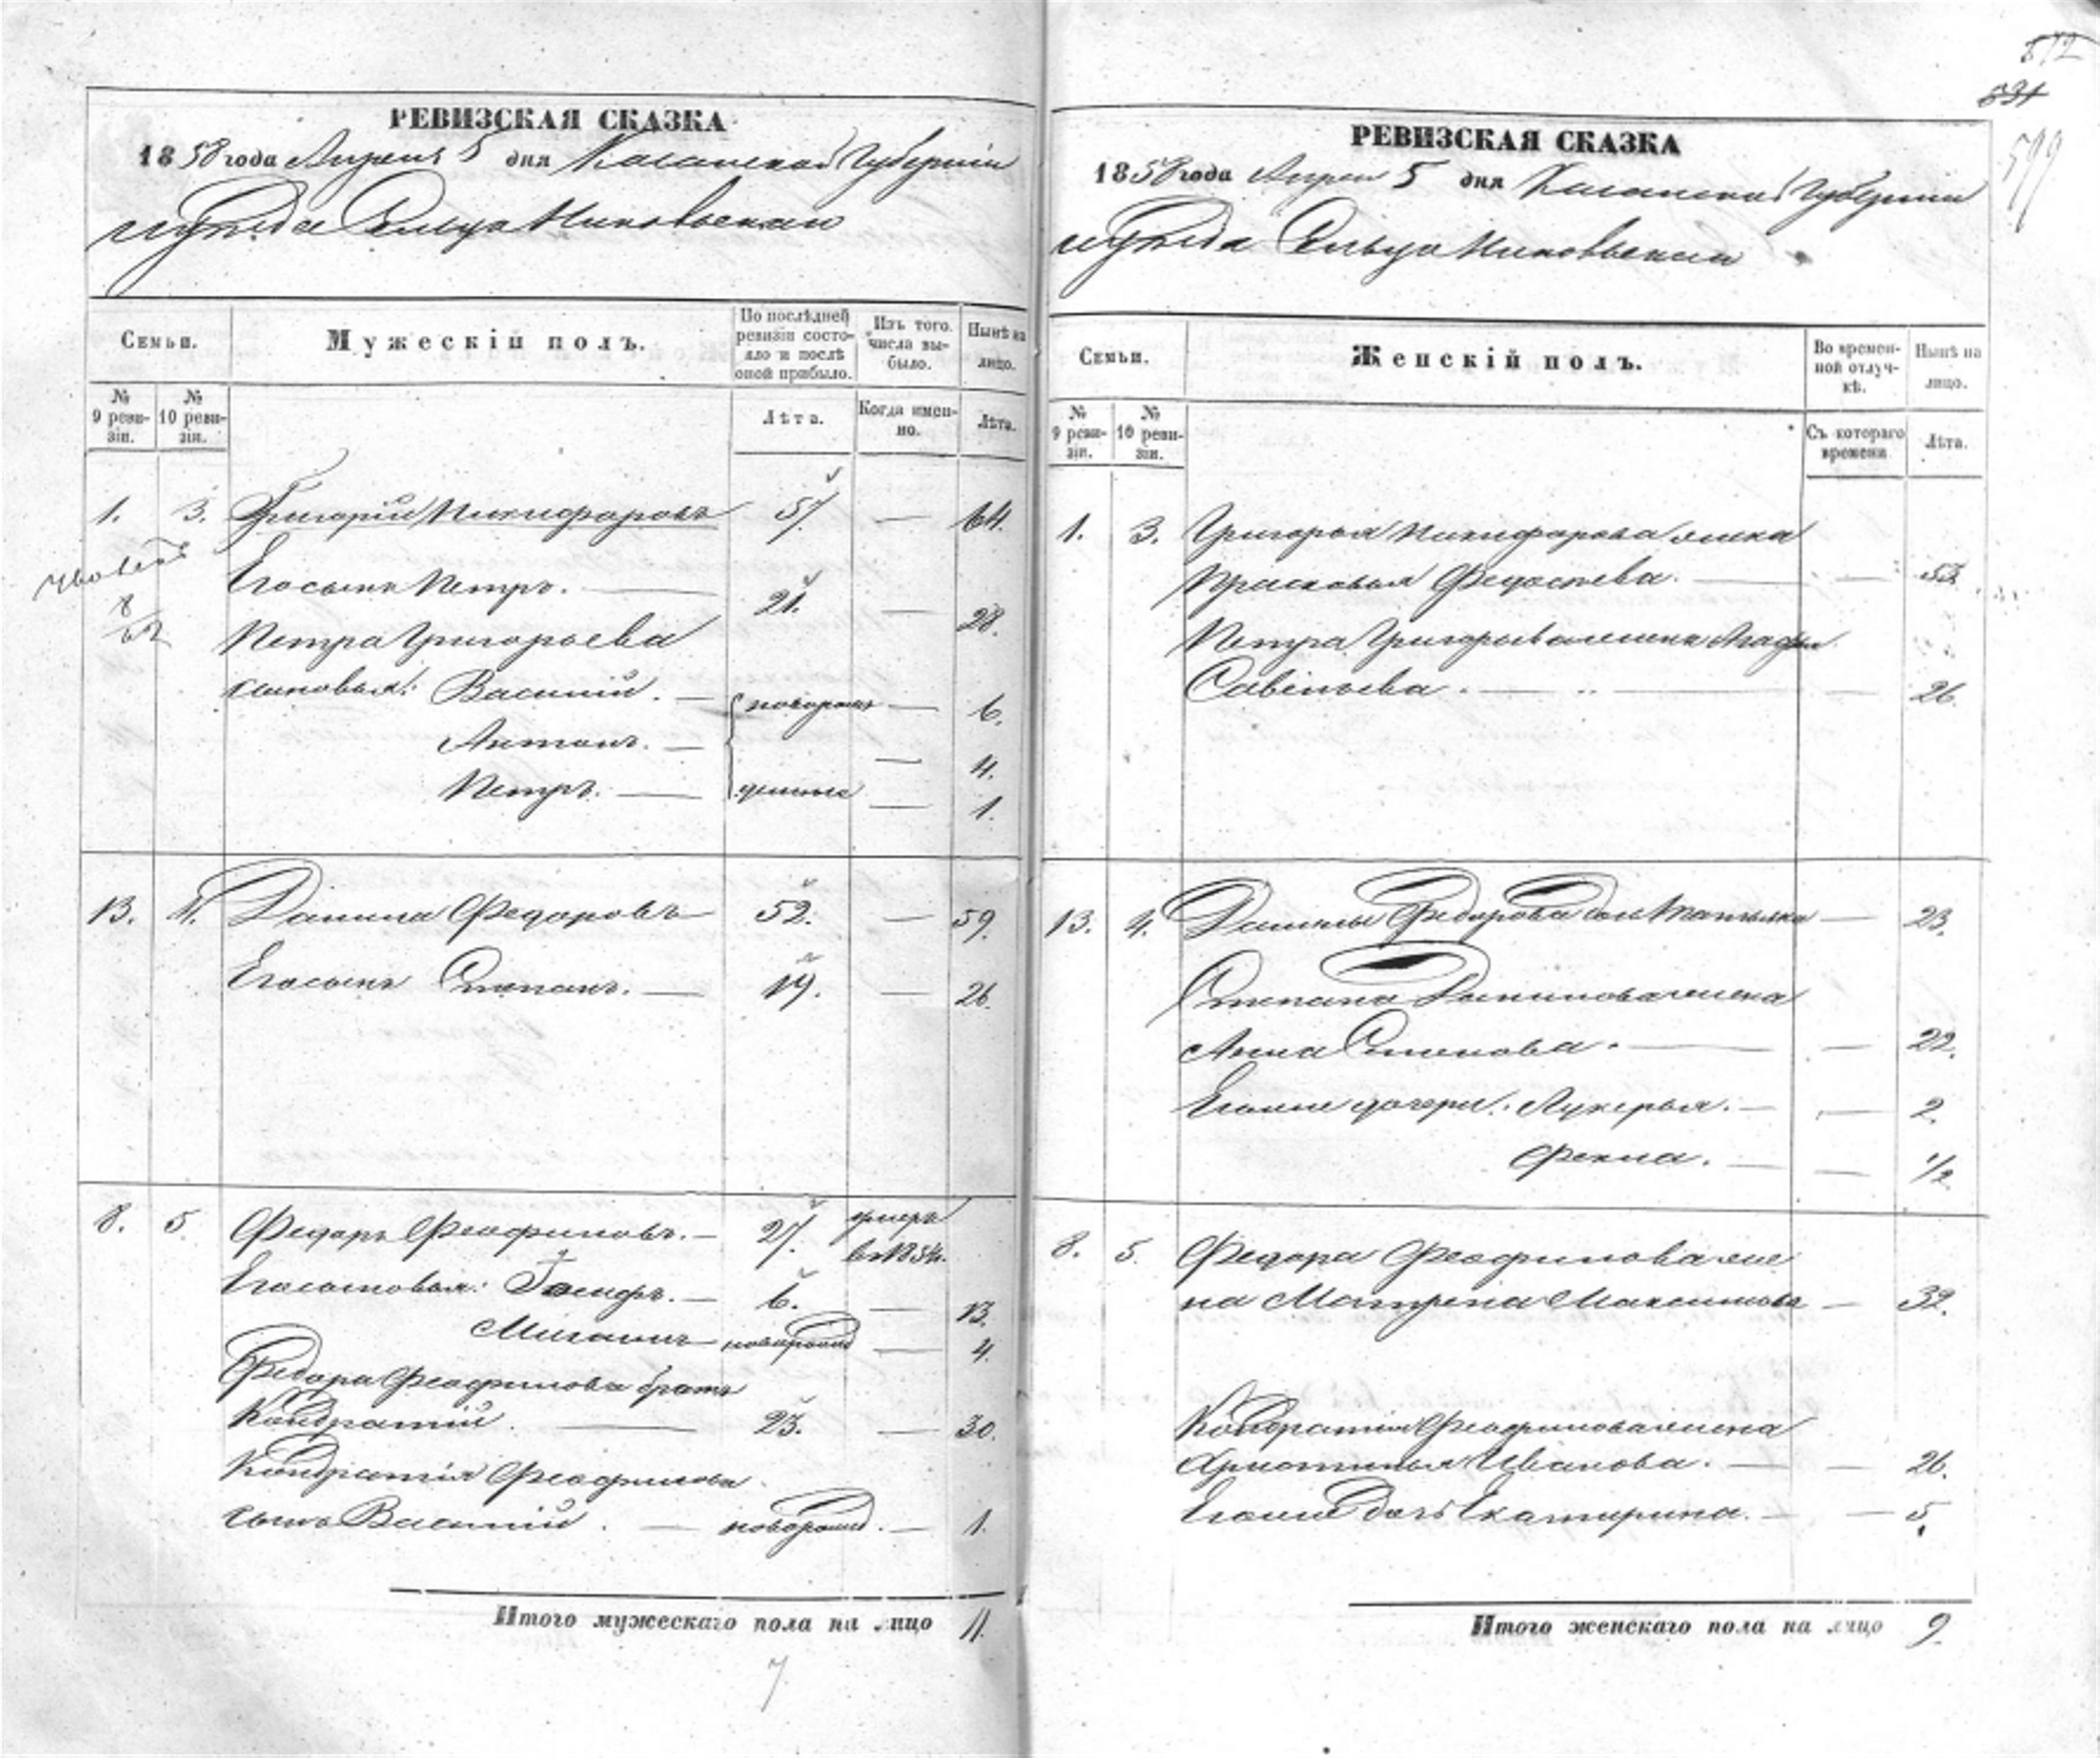 572
531
599
РЕВИЗСКАЯ СКАЗКА
1858 года Апреля 5 дня Казанской Губернiи
уѣзда Сельца Никольскаго
Семьи.
Мужескiй полъ.
По послѣдней ревизiи состояло и послѣ оной прибыло.
Изъ того числа выбыло.
Нынѣ на лицо.
№ 9 ревизiи.
№ 10 ревизiи.
Лѣта.
Когда именно.
Лѣта.
1. 3. Григорiй Никифоровъ 57. — 64.
Его сынъ Петръ. — 21. — 28.
Петра Григорьева
сыновья: Василiй. — новорожд — 6.
Антонъ. — — 4.
Петръ. — — 1.
13. 4. Данила Федоровъ 52. — 59.
Его сынъ Степанъ. — 19. — 26.
8. 5. Федоръ Феофиловъ. — 27. умеръ
в 1854.
Его сыновья: Iосифъ. — 6. — 13.
новорожд — 4.
Федора Феофилова братъ
Кондратiй. — 23. — 30.
Кондратiя Феофилова
сынъ Василiй. — новорожд. — 1.
Итого мужескаго пола на лицо 11.
7
РЕВИЗСКАЯ СКАЗКА
1858 года Апреля 5 дня Казанской Губернiи
уѣзда Сельца Никольскаго
Семьи.
Женскiй полъ.
Во временной отлучкѣ.
Нынѣ на лицо.
№ 9 ревизiи.
№ 10 ревизiи.
Съ котораго времени
Лѣта.
1. 3. Григорья Никифорова жена
Прасковья — — 53.
Петра Григорьева жена Агафья
Савельева. — — 26.
13. 4. Данилы Федорова дочь Татьяна — 23.
Степана Данилова жена
Анна Семенова. — — 22.
Его же дочери: Лукерья. — — 2.
Фекла. — — 1/2
8. 5. Федора Феофилова же
на Матрена Максимова — 32.
Кондратiя Феофилова жена
Христинья Иванова. — — 26.
Его же дочь Екатерина. — — 5.
Итого женскаго пола на лицо 9.